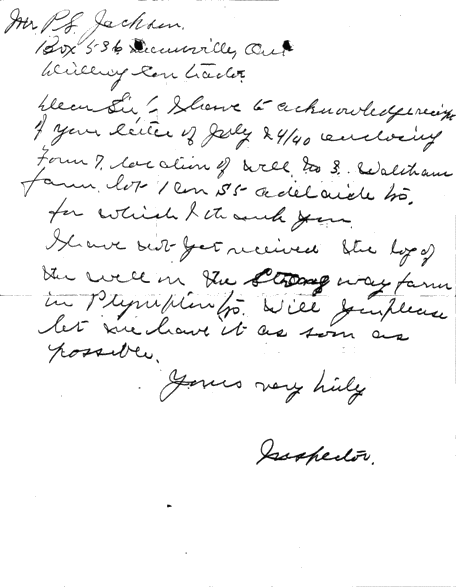 Mr P.S. Jackson.
Box 536 Ont
Drilling Contractor
Dear Sir:- I have to acknowledge receipt
of your letter of July 24/40 enclosing
Form 7, location of well no 3. Waltham
farm lot 1 Con S5 Adelaide tp.
for which I thank you
I have not yet received the log of
the well on the Strong way farm
in Plympton tp. Will you please
let me have it as soon as
possible.
Yours very truly
Inspector.